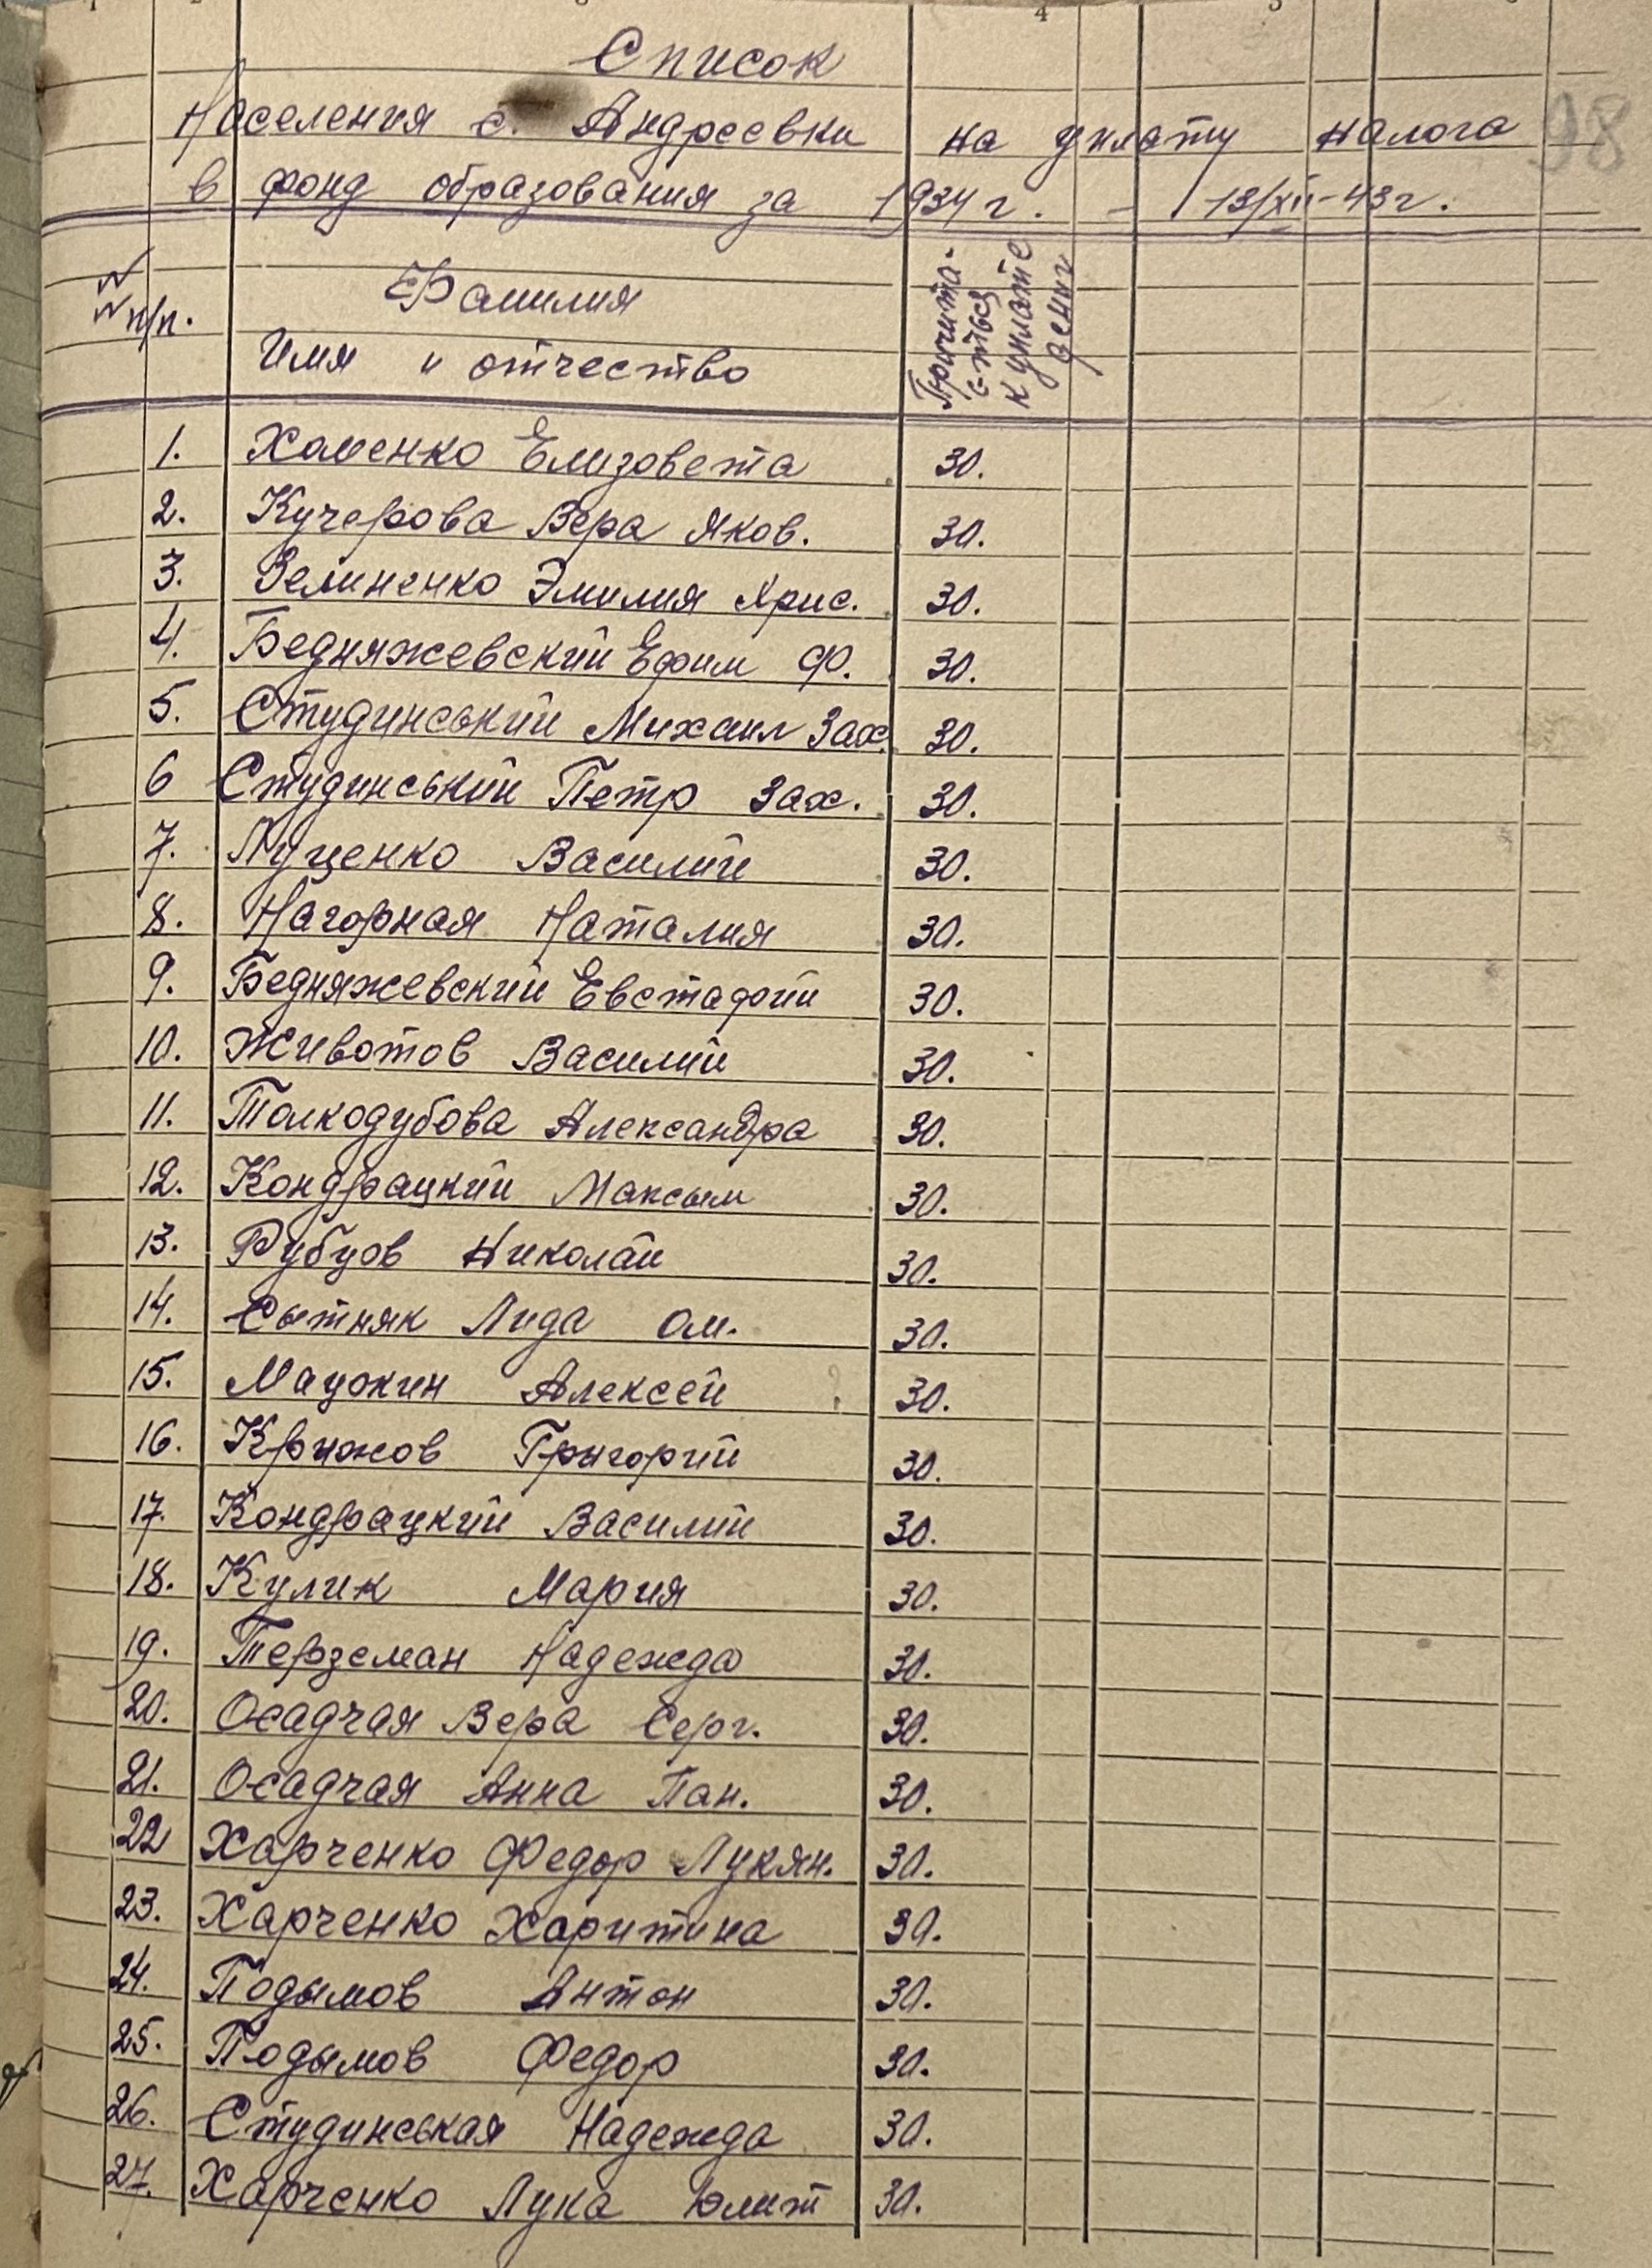 4 5
Список
Населения с. Андреевки на уплату налога
98
в фонд образования за 1934 г. - 13/XII-43г.
№№ п/п.
Фамилия
Имя и отчество
Причита-
е-ться
к уплате
дениг
1. Хоменко Елизовета 30.
2. Кучерова Вера Яков. 30.
3. Зелиненко Эмилия Хрис. 30.
4. Бедняжевский Ефим Ф. 30.
5. Студинський Михаил Зах. 30.
6 Студинський Петр Зах. 30.
7. Луценко Василий 30.
8. Нагорная Наталия 30.
9. Бедняжевский Евстафий 30.
10. Животов Василий 30.
11. Толкодубова Александра 30.
12. Кондрацкий Максым 30.
13. Рубцов Николай 30.
14. Сытняк Лида Ом. 30.
15. Мацокин Алексей 30.
16. Крижов Григорий 30.
17. Кондрацкий Василий 30.
18. Кулик Мария 30.
19. Терземан Надежда 30.
20. Осадчая Вера Серг. 30.
21. Осадчая Анна Пан. 30.
22 Харченко Федор Лукян. 30.
23. Харченко Харитина 30.
24. Подымов Антон 30.
25. Подымов Федор 30.
26. Студинськая Надежда 30.
27. Харченко Лука 30.